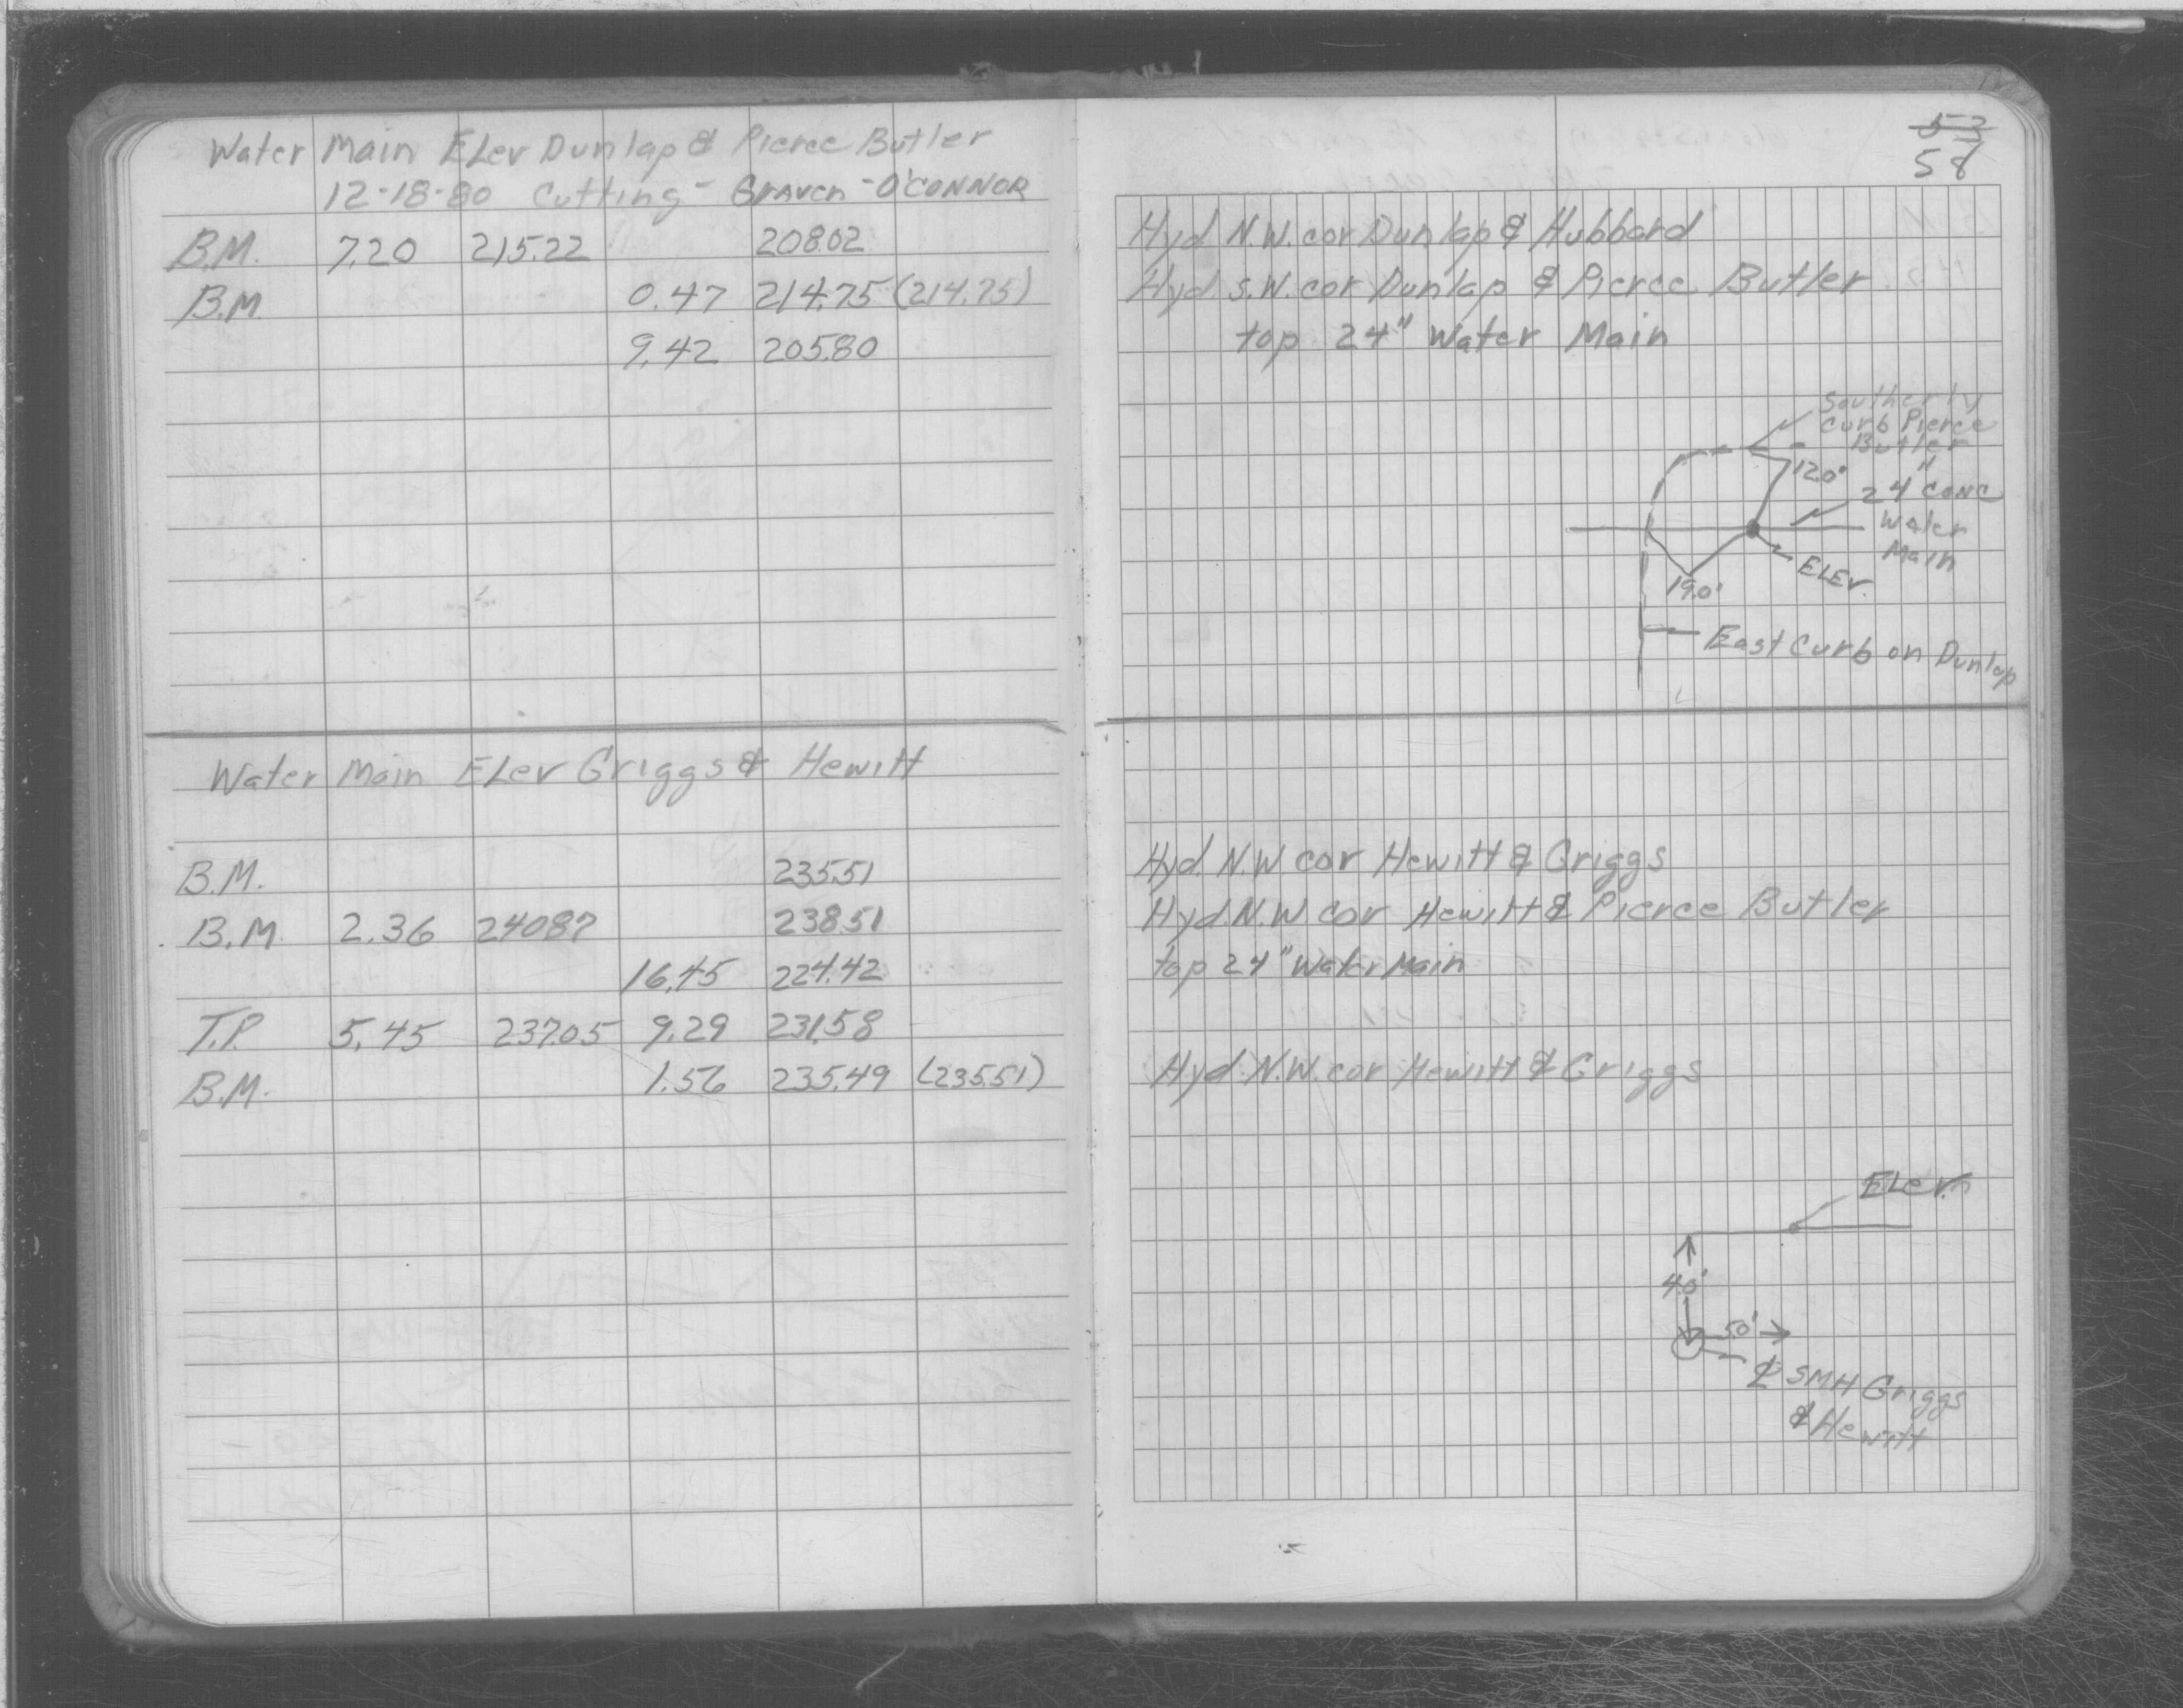 Water Main ELev Dunlap & Pierce Butler
12-18-80 Cutting - Graven - O'CONNOR
B.M. 7.20 215.22 208.02
B.M 0.47 214.75 (214.75)
9.42 205.80
Water Main ELev Griggs & Hewitt
B.M. 235.51
B.M. 2.36 240.87 238.51
16.45 224.42
T.P. 5.45 237.05 9.29 231.58
B.M. 1.56 235.49 (235.51)
53
58
Hyd. N.W. cor Dunlap & Hubbard
Hyd. S.W. cor Dunlap & Pierce Butler
top 24" Water Main
Southerly
Curb Pierce
Butler
12.0'
24" CONC
Water
Main
ELEV.
19.0'
East Curb on Dunlap
Hyd. N.W cor Hewitt & Griggs
Hyd. N.W cor Hewitt & Pierce Butler
top 24" Water Main
Hyd. N.W. cor Hewitt & Griggs
ELev.
50'
SMH Griggs
& Hewitt